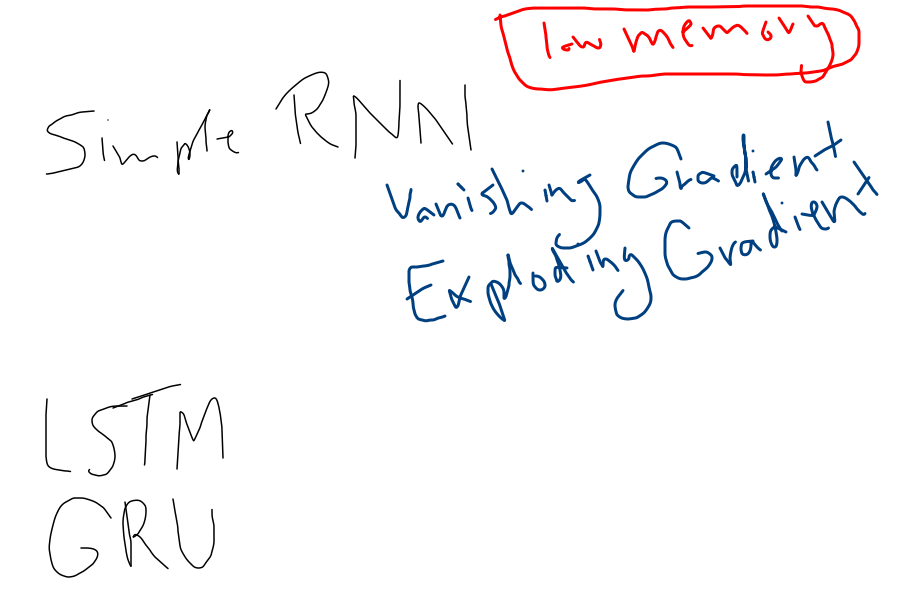 low memory
Simple RNN
Vanishing Gradient
Exploding Gradient
LSTM
GRU